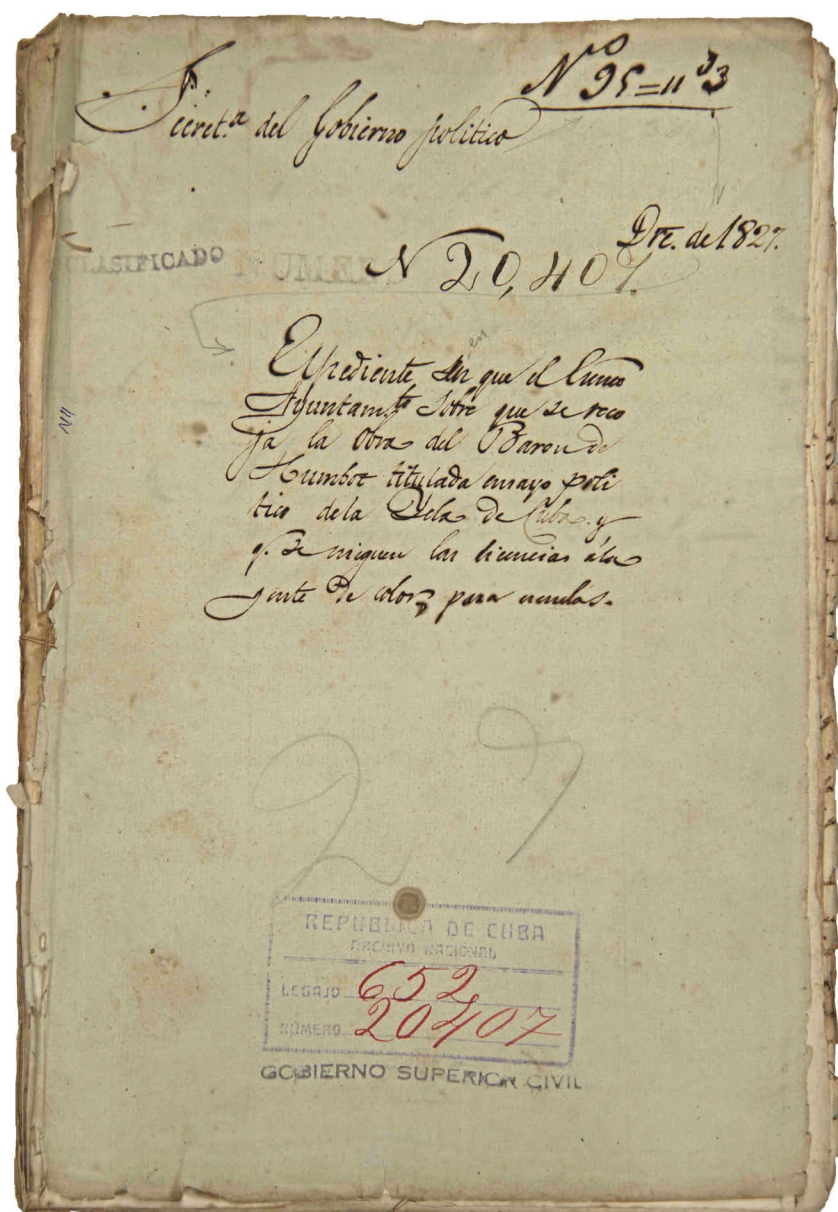 Nº 95=11 33
Secret.ª del Gobierno politico
Dre. de 1827.
CLASIFICADO NUME
N 20,407.
en
Expediente en que el Exmo
Ayuntam.to sobre que se reco
ja la obra del Baron de
Humbot titulada ensayo poli
tico dela Ysla de Cuba y
q. se nieguen las licencias ála
gente de color para escuelas.
27
REPUBLICA DE CUBA
ARCHIVO NACIONAL
LEGAJO 652
NÚMERO 20407
GOBIERNO SUPERIOR CIVIL